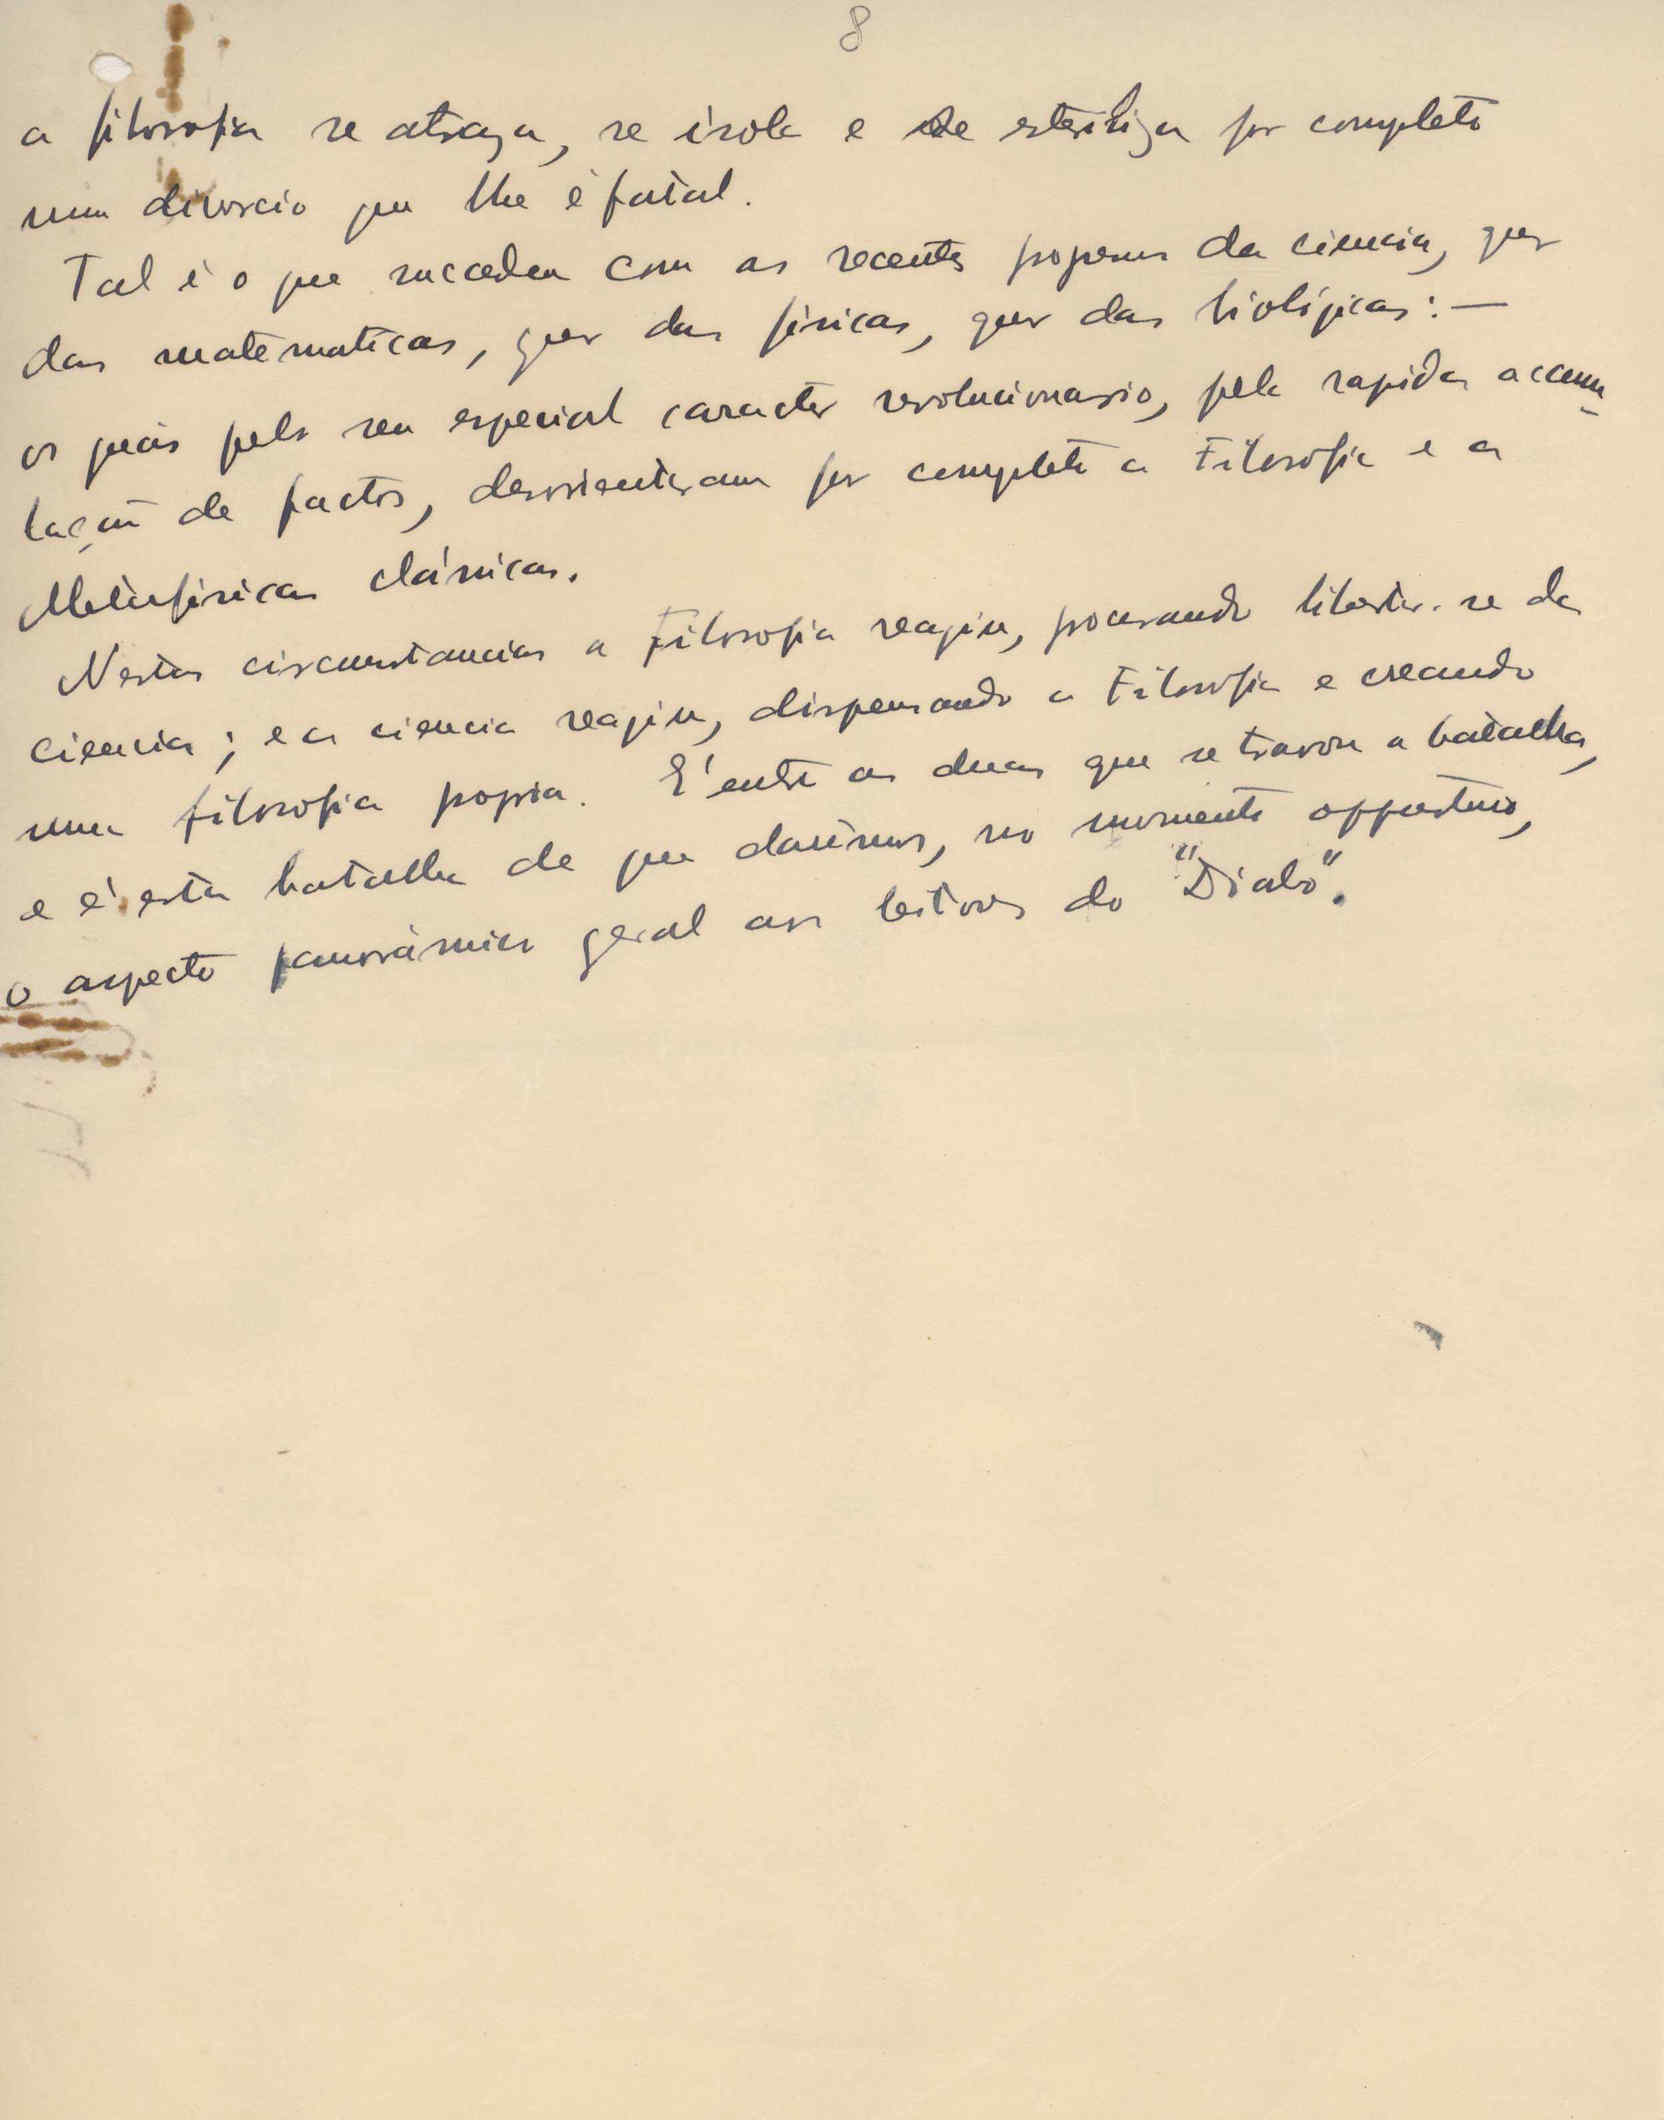 8
a filosofia se atraza, se isola e se esteriliza por completo
num divorcio que lhe é fatal.
Tal é o que succedeu com os recentes progressos da ciencia, quer
das matematicas, quer das fisicas, quer das biológicas: —
os quais pelo seu especial caracter revolucionario, pela rapida accumu-
lação de factos, desorientaram por completo a Filosofia e a
Metafisica clássicas.
Nestas circumstancias a Filosofia reagiu, procurando libertar-se da
ciencia; e a ciencia reagiu, dispensando a Filosofia e creando
uma filosofia propria. É entre as duas que se travou a batalha,
e é esta batalha de que daremos, no momento opportuno,
o aspecto panorâmico geral aos leitores do "Diabo".